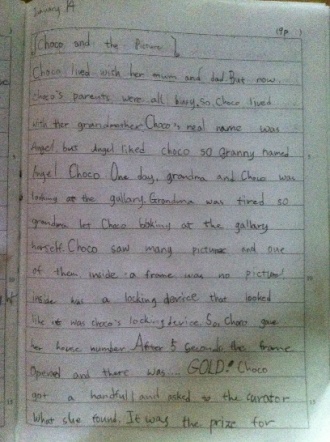 January 14
19p
[Choco and the Picture]
Choco lived with her mum and dad. But now
choco's parents were all busy, so, Choco lived
with her grandmother. Choco's real name was
Angel, but Angel liked choco so Granny named
Angel Choco One day, grandma and Choco was
looking at the gallary. Grandma was tired so
grandma let Choco looking at the gallary
herself. Choco saw many pictures and one
of them inside a frame was no picture!
Inside has a locking device that looked
like it was choco's locking device. So, Choco gave
her house number. After 5 seconds the frame
opened and there was.... GOLD! Choco
got a handful and asked to the curator
What she found. It was the prize for